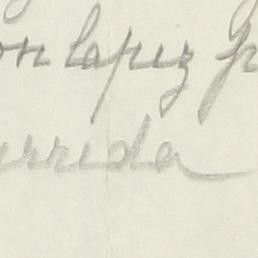 on lapiz p
urrida